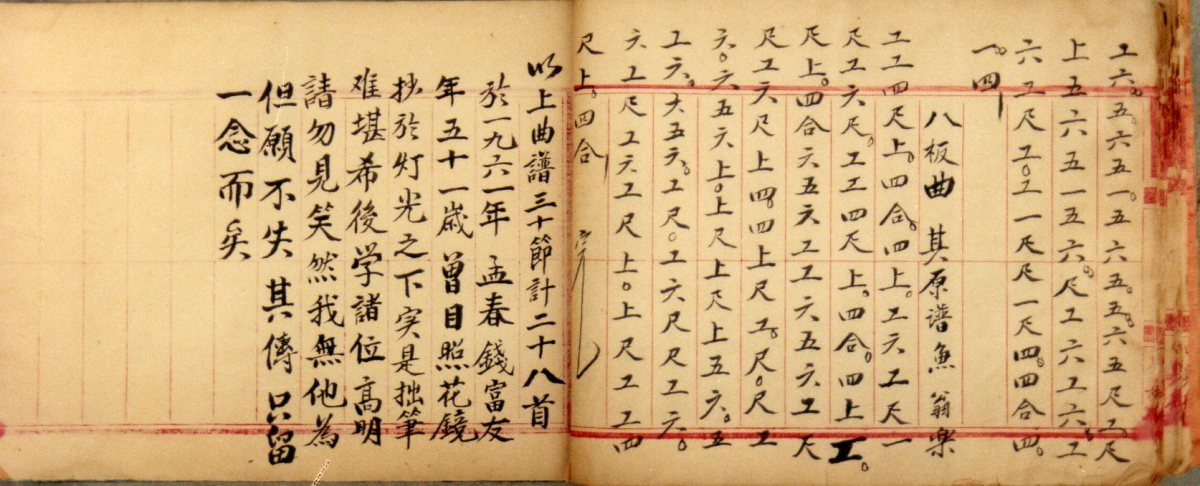 工六。五。六五一。五六五。五。六五尺工。尺
上五六五一五六。尺工六工六。工
六工尺工。工一尺尺一尺四。四合四。
一。四
八板曲 其原谱魚翁樂
工工四尺上。四合。四上。工六工尺一
尺工六尺。工工四尺上。四合。四上工。
尺上。四合六五六工工六五六工尺
尺工六尺上四。四上尺工。尺。尺工
六。六五六上。上尺上尺上五六。五
工六。六五六。工尺。工六尺工六。
六工尺工六工尺上。上尺工工四
尺上。四合
以上曲譜三十節計二十八首
於一九六一年孟春錢富友
年五十一歲曾目照花鏡
抄於灯光之下実是拙筆
难堪希後学諸位高明
請勿見笑然我無他為
但願不失其傳只留
一念而矣